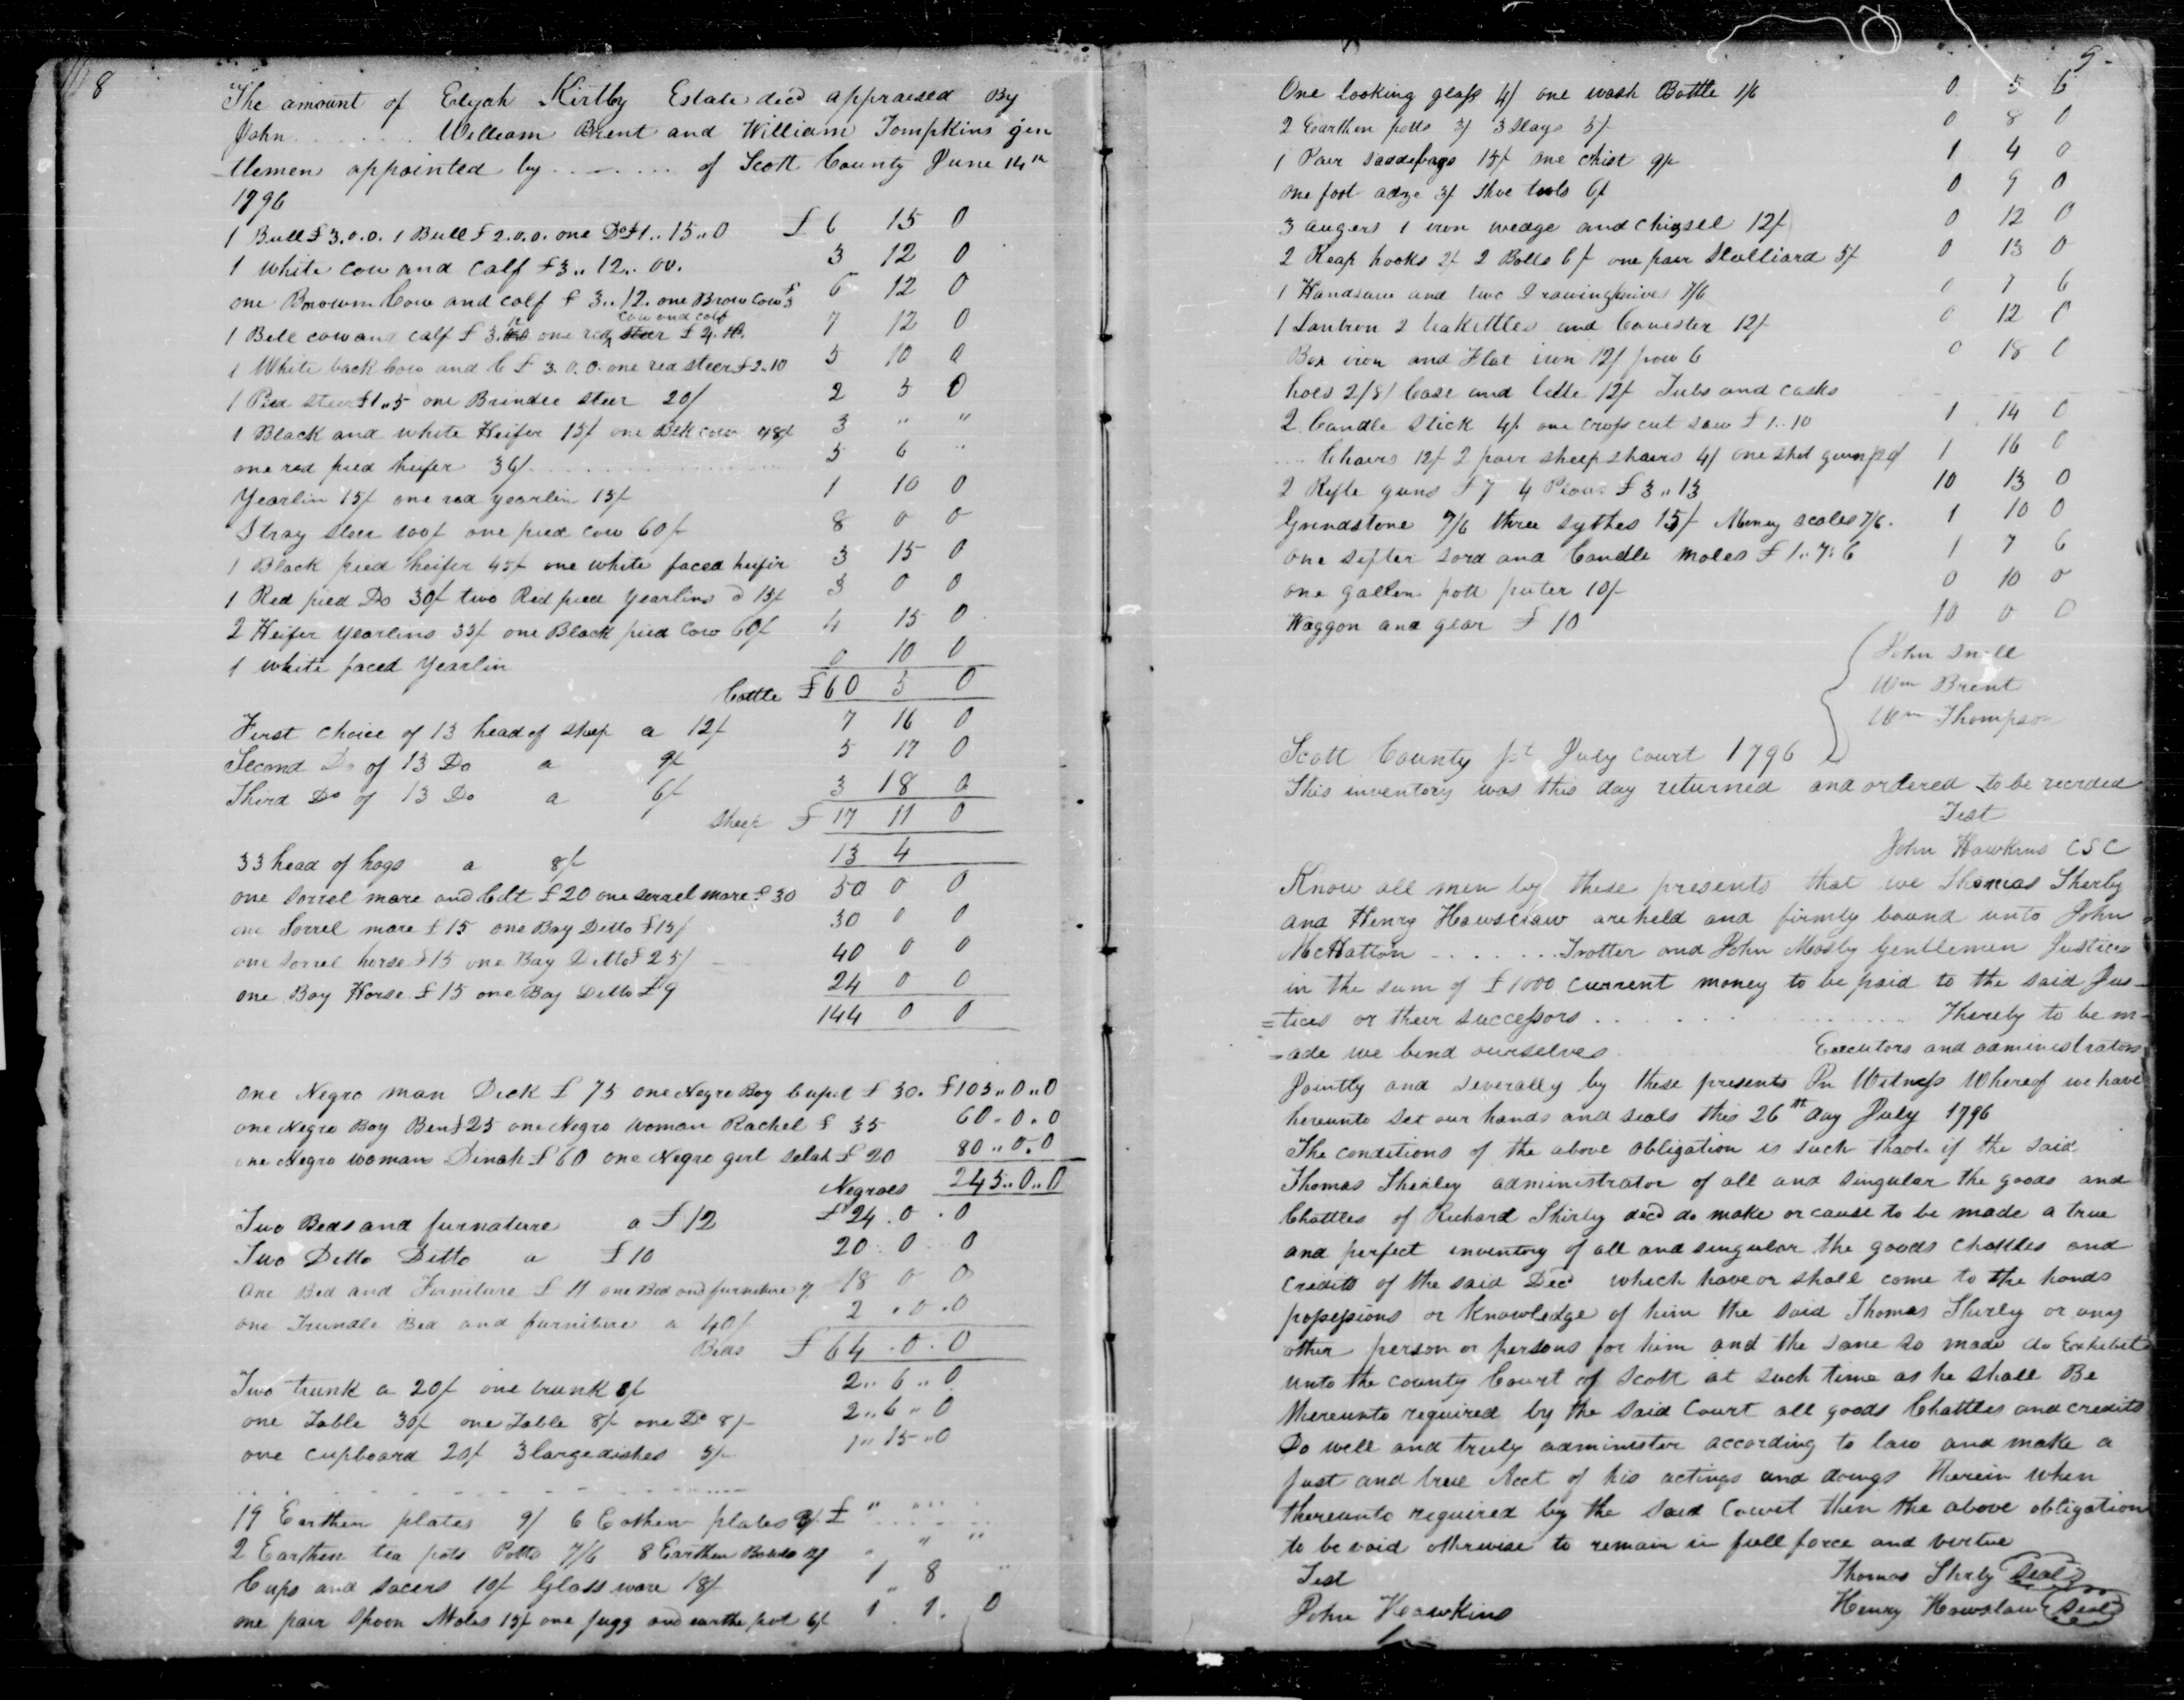 8
The amount of Elijah Kirtly Estate decd appraised By
John . . . . . . William Brent and William Tompkins gen
tlemen appointed by . . . . . . of Scott County June 14th
1796
1 Bull £ 3.0.0. 1 Bull £ 2.0.0. one Do £1..15..0 £ 6 15 0
1 white cow and calf £3..12..00. 3 12 0
one Browwn Cow and calf £ 3..12. one Brow Cow £3 6 12 0
1 Bell cow and calf £ 3.12 one red cow and calf £ 4. 7 12 0
1 White back Cow and C £ 3.0.0. one red steer £2..10 5 10 0
1 Pied steer £1..5 one Brindee steer 20/ 2 5 0
1 Black and white Heifer 15/ one Blk cow 48/ 3 " "
one red pied heifer 36/ . . . . . . 5 6 "
Yearlin 15/ one red yearlin 15/ 1 10 0
Stray steer 100/ one pied cow 60/ 8 0 0
1 Black pied heifer 45/ one white faced heifir 3 15 0
1 Red pied Do 30/ two Red pied yearlins @ 15/ 3 0 0
2 Heifer yearlins 35/ one Black pied Cow 60/ 4 15 0
1 white faced yearlin 0 10 0
Cattle £60 5 0
First choice of 13 head of sheep a 12/ 7 16 0
Second Do of 13 Do a 9/ 5 17 0
Third Do of 13 Do a 6/ 3 18 0
Sheep £ 17 11 0
33 head of hogs a 8/ 13 4
one sorrel mare and Colt £20 one sorrel mare £30 50 0 0
one Sorrel mare £15 one Bay Ditto £15/ 30 0 0
one sorrel horse £15 one Bay Ditto £25/ 40 0 0
one Bay Horse £15 one Bay Ditto £9 24 0 0
144 0 0
one Negro man Dick £ 75 one Negro Boy Cupit £ 30. £105..0..0
one Negro Boy Ben £25 one Negro woman Rachel £ 35 60.0.0
one Negro woman Dinah £60 one Negro girl Selah £20 80..0.0
Negroes 245..0..0
Two Beds and furnature a £12 £24.0.0
Two Ditto Ditto a £10 20 0 0
one Bed and Furniture £ 11 one Bed and furniture 7 18 0 0
one Trundle Bed and furniture a 40/ 2.0.0
Beds £64.0.0
Two trunk a 20/ one trunk 6/ 2..6..0
one Table 30/ one Table 8/ one Do 8/ 2..6..0
one cupboard 20/ 3 large dishes 5/ 1..15..0
19 Earthen plates 9/ 6 Eathen plates 3/ £ " " "
2 Earthen tea pots Potts 7/6 8 Earthen Bowls " "
Cups and sacers 10/ Glass ware 18/ 1 8 "
one pair spoon Moles 15/ one jugg and earthe pot 6/ 1 1. 0
9
One looking glass 4/ one wash Bottle 1/6 0 5 6
2 Earthen potts 3/ 3 Slays 5/ 0 8 0
1 Pair saddlebags 15/ one chist 9/ 1 4 0
one foot adze 3/ shoe tools 6/ 0 9 0
3 augers 1 iron wedge and chizsel 12/ 0 12 0
2 Reap hooks 2/ 2 Bells 6/ one pair Stilliard 5/ 0 13 0
1 Handsaw and two Drawing knives 7/6 0 7 6
1 Lantron 2 teakettles and Canester 12/ 0 12 0
Box iron and Flat iron 12/ pow 6 0 18 0
hoes 2/8/ Case and 12/ Tubs and casks
2 Candle Stick 4/ one cross cut saw £ 1..10 1 14 0
. . . Chairs 12/ 2 pair sheep shairs 4/ one shot gun 1 16 0
2 Rifle guns £ 7 4 £ 3..13 10 13 0
Grindstone 7/6 three sythes 15/ Money scales 7/6. 1 10 0
one sifter sord and Candle moles £ 1..7:6 1 7 6
one gallen pott puter 10/ 0 10 0
Waggon and gear £ 10 10 0 0
John Snell
Wm Brent
Wm Thompson
Scott County Sct July court 1796
This inventory was this day returned and ordered to be recrded
Test
John Hawkins CSC
Know all men by these presents that we Thomas Sherly
and Henry Hawsclaw are held and firmly bound unto John
McHatton . . . . . . . Trotter and John Mosby Gentlemen Justices
in the sum of £1000 current money to be paid to the said Jus-
=tices or their successors . . . . . . Thereby to be m-
=ade we bind ourselves Executors and administrators
Jointly and severally by these presents In Witness Whereof we have
hereunto set our hands and seals this 26th day July 1796
The conditions of the above obligation is such that if the said
Thomas Sherley administrator of all and singular the goods and
Chattles of Richard Shirly decd do make or cause to be made a true
and perfect inventory of all and singular the goods chattles and
credits of the said Decd which have or shall come to the hands
possessions or knowledge of him the said Thomas Shirly or any
other person or persons for him and the same so made do Exhibit
unto the county Court of Scott at such time as he shall Be
thereunto required by the said Court all goods Chattles and credits
Do well and truly administer according to law and make a
just and true Acct of his actings and doings Therein when
thereunto required by the said Court then the above obligation
to be void otherwise to remain in full force and vertue
Test Thomas Shrly Seal
John Hawkins Henry Hawslaw Seal